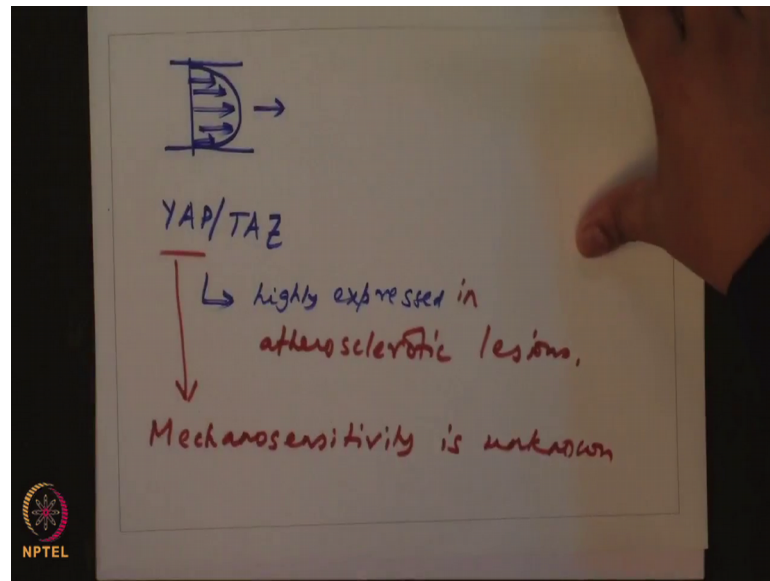 YAP/TAZ
↳ highly expressed in
atherosclerotic lesions.
Mechanosensitivity is unknown
NPTEL